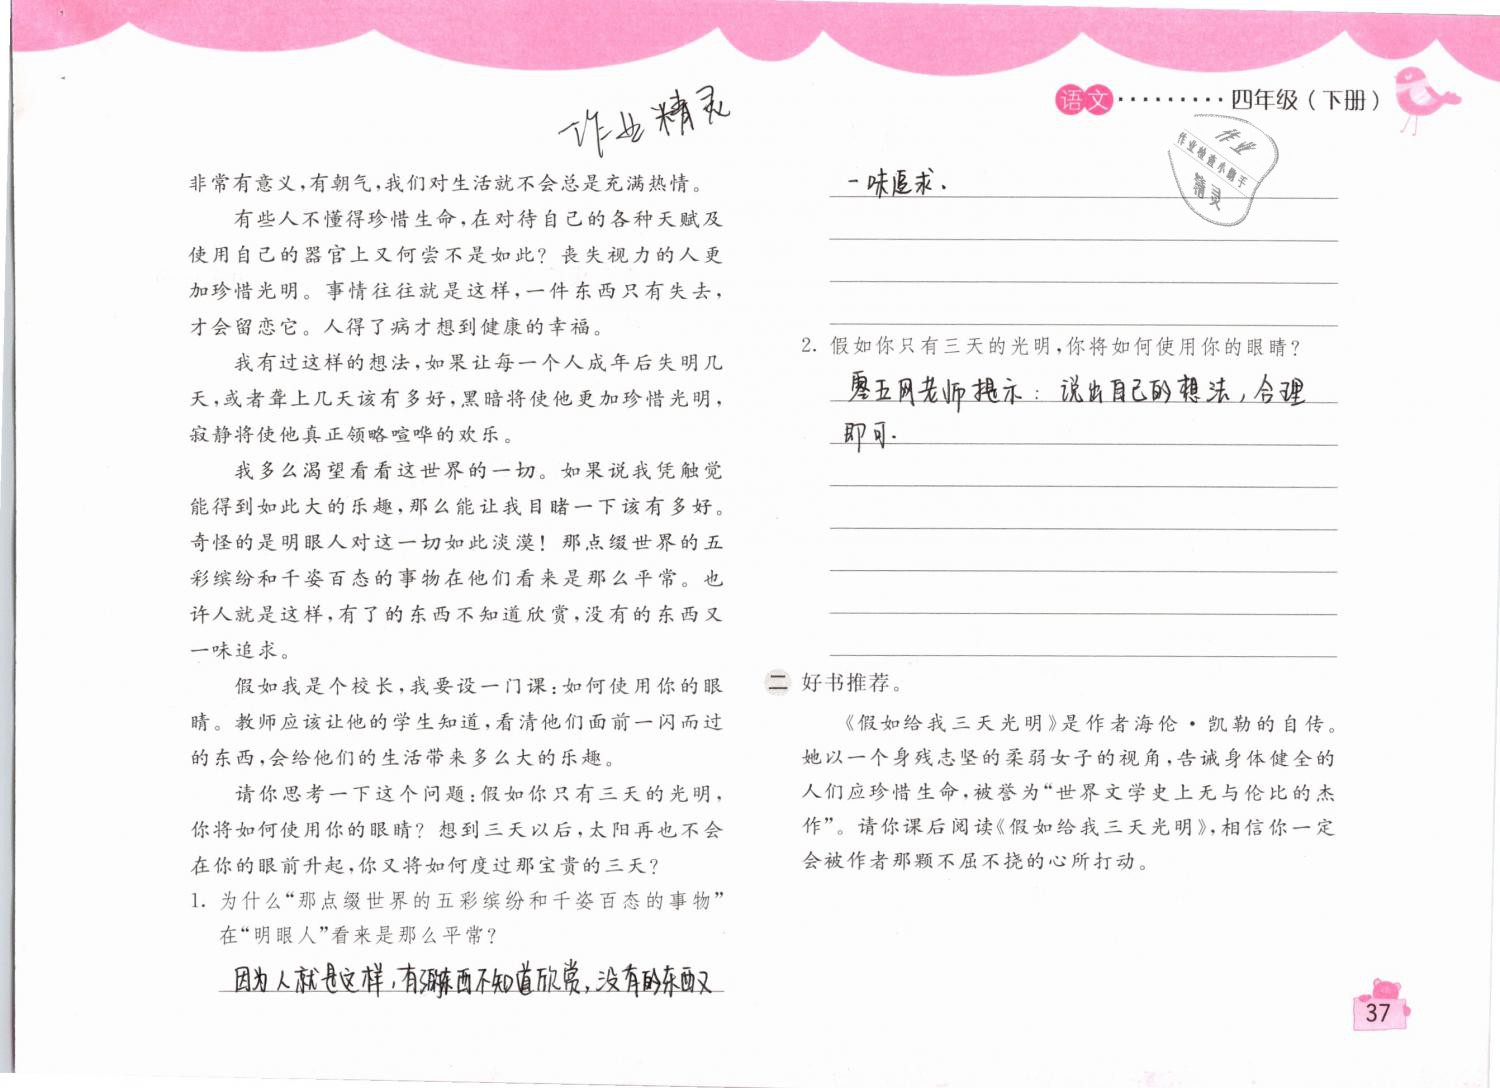 语文·········四年级(下册)
作业精灵
作业
作业检查小助手
精灵
非常有意义,有朝气,我们对生活就不会总是充满热情。
有些人不懂得珍惜生命,在对待自己的各种天赋及
使用自己的器官上又何尝不是如此？丧失视力的人更
加珍惜光明。事情往往就是这样,一件东西只有失去,
才会留恋它。人得了病才想到健康的幸福。
我有过这样的想法,如果让每一个人成年后失明几
天,或者聋上几天该有多好,黑暗将使他更加珍惜光明,
寂静将使他真正领略喧哗的欢乐。
我多么渴望看看这世界的一切。如果说我凭触觉
能得到如此大的乐趣,那么能让我目睹一下该有多好。
奇怪的是明眼人对这一切如此淡漠！那点缀世界的五
彩缤纷和千姿百态的事物在他们看来是那么平常。也
许人就是这样,有了的东西不知道欣赏,没有的东西又
一味追求。
假如我是个校长,我要设一门课:如何使用你的眼
睛。教师应该让他的学生知道,看清他们面前一闪而过
的东西,会给他们的生活带来多么大的乐趣。
请你思考一下这个问题:假如你只有三天的光明,
你将如何使用你的眼睛？想到三天以后,太阳再也不会
在你的眼前升起,你又将如何度过那宝贵的三天？
1. 为什么“那点缀世界的五彩缤纷和千姿百态的事物”
在“明眼人”看来是那么平常？
因为人就是这样,有了的东西不知道欣赏,没有的东西又
一味追求.
2. 假如你只有三天的光明,你将如何使用你的眼睛？
零五网老师提示:说出自己的想法,合理
即可.
二 好书推荐。
《假如给我三天光明》是作者海伦·凯勒的自传。
她以一个身残志坚的柔弱女子的视角,告诫身体健全的
人们应珍惜生命,被誉为“世界文学史上无与伦比的杰
作”。请你课后阅读《假如给我三天光明》,相信你一定
会被作者那颗不屈不挠的心所打动。
37